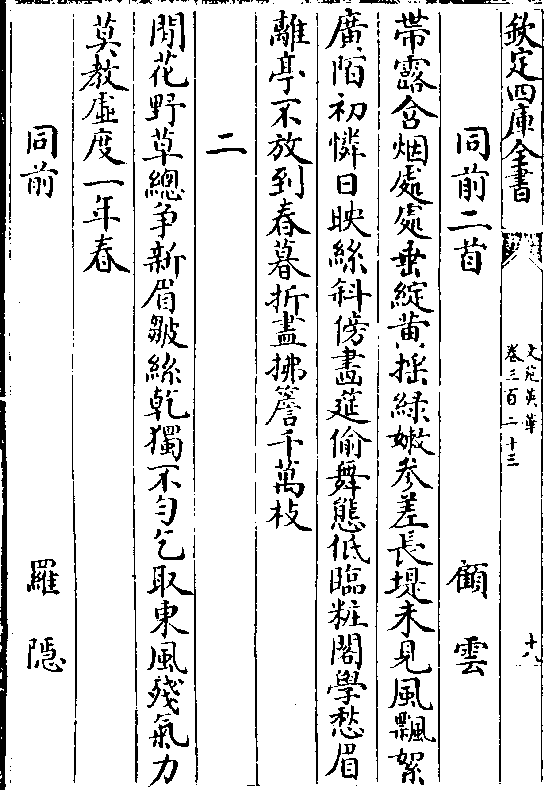 欽定四庫全書
文苑英華
卷三百二十三
十八
同前二首 顧雲
帶露含烟處處垂綻黄揺綠嫩參差長堤未見風飄絮
廣陌初憐日映絲斜傍畵筵偷舞態低臨粧閣學愁眉
離亭不放到春暮折盡拂簷千萬枝
二
閒花野草總爭新眉皺絲乾獨不勻乞取東風殘氣力
莫教虛度一年春
同前 羅隱